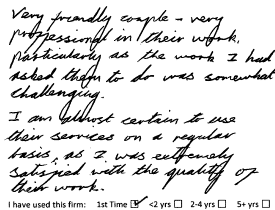 Very friendly couple - very
professional in their work,
particularly as the work I had
asked them to do was somewhat
challenging.
I am almost certain to use
their services on a regular
basis, as I was extremely
satisfied with the quality of
their work.
I have used this firm: 1st Time ☑ <2 yrs ☐ 2-4 yrs ☐ 5+ yrs ☐